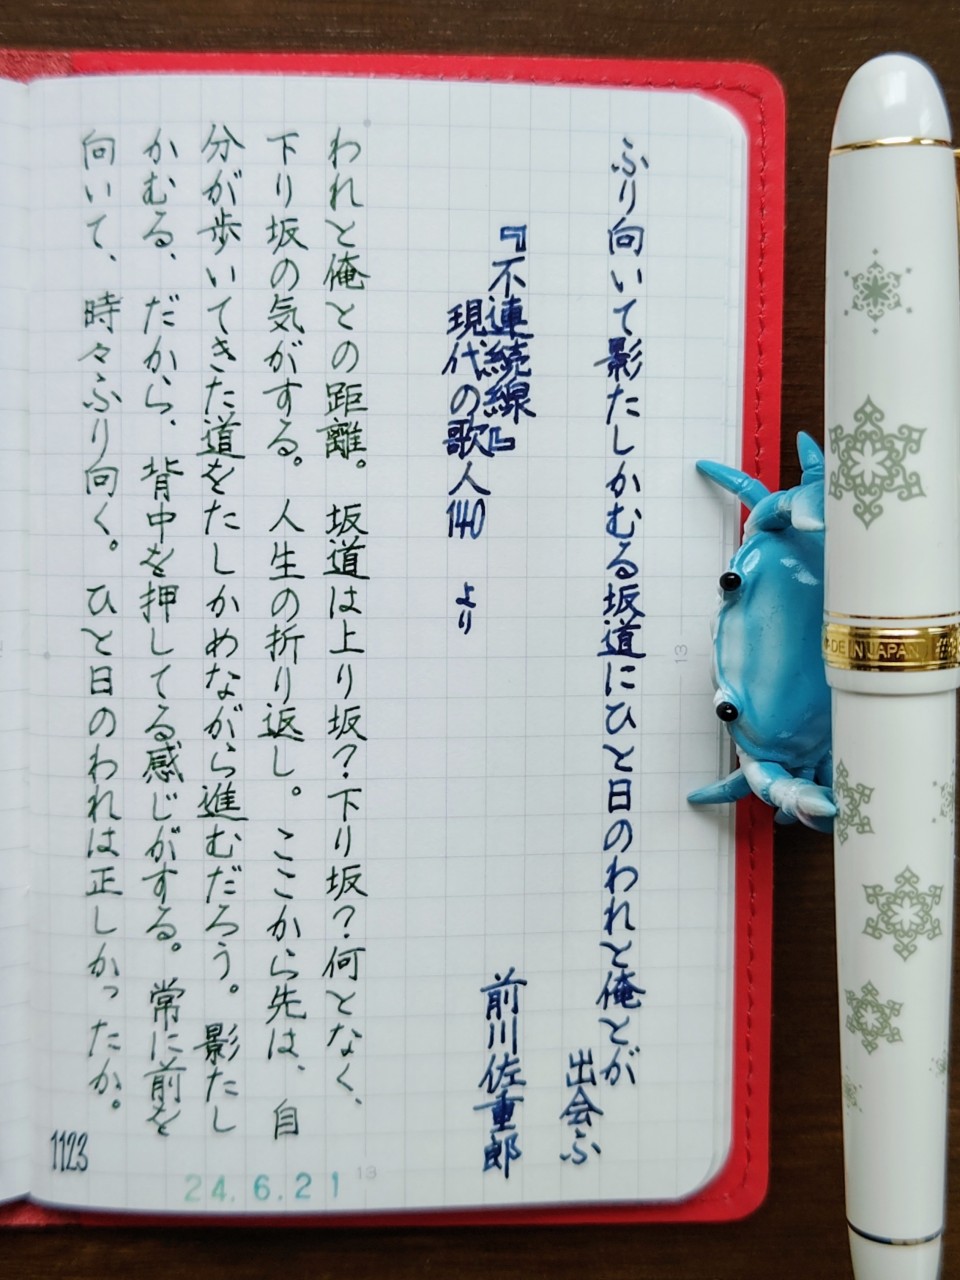 ふり向いて影たしかむる坂道にひと日のわれと俺とが
出会ふ
『不連続線』
現代の歌人140 より
前川佐重郎
われと俺との距離。坂道は上り坂?下り坂?何となく、
下り坂の気がする。人生の折り返し。ここから先は、自
分が歩いてきた道をたしかめながら進むだろう。影たし
かむる、だから、背中を押してる感じがする。常に前を
向いて、時々ふり向く。ひと日のわれは正しかったか。
1123
24.6.21
13
13
DE IN JAPAN